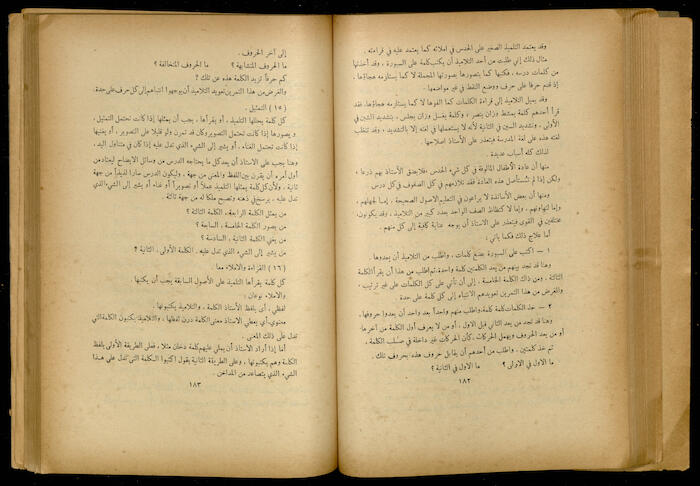 وقد يعتمد التلميذ الصغير على الحدس في املائه كما يعتمد عليه في قراءته .
مثال ذلك إني طلبت من أحد التلاميذ أن يكتب كلمة على السبورة ، وقد أخذتها
من كلمات درسه ، فكتبها كما يتصورها بصورتها المجملة لا كما يستلزمه هجاؤها ،
إذ قدم حرفاً على حرف ووضع النقط في غير مواضعها .
وقد يميل التلاميذ إلى قراءة الكلمات كما ألفوها لا كما يستلزمه هجاؤها، فقد
قرأ أحدهم كلمة يمشط وزان ينصر ، وكلمة يغسل وزان يجلس ، بتشديد الشين في
الأولى ، وتشديد السين في الثانية لأنه لا يستعملها في لغته إلا بالتشديد ، وقد تتغلب
لغته هذه على لغة المدرسة فيتعذر على الأستاذ اصلاحها .
لذلك كله أسباب عديدة .
منها أن عادة الأطفال المألوفة في كل شيء الحدس ، فلا يضق الأستاذ بهم ذرعاً ،
ولكن إذا لم تستأصل هذه العادة فقد تلازمهم في كل الصفوف في كل درس .
ومنها أن بعض الأساتذة لا يراعون في التعليم الأصول الصحيحة ، إما لجهلهم ،
وإما لتهاونهم ، وإما لاكتظاظ الصف الواحد بعدد كبير من التلاميذ ، وقد يكونون
مختلفين في القوى فيتعذر على الأستاذ أن يوجه عناية كافية إلى كل منهم .
أما علاج ذلك فكما يأتي :
١ – اكتب على السبورة بضع كلمات ، واطلب من التلاميذ أن يعدوها .
وهنا قد تجد بينهم من يعد الكلمتين كلمة واحدة، ثم اطلب من هذا أن يقرأ الكلمة
الثالثة ، ومن ذاك الكلمة الخامسة ، إلى أن تأتي على كل الكلمات على غير ترتيب .
والغرض من هذا التمرين تعويدهم الانتباه إلى كل كلمة على حدة .
٢ – خذ الكلمات كلمة كلمة، واطلب منهم واحداً بعد واحد أن يعدوا حروفها .
وهنا قد تجد من يعد الثاني قبل الأول ، أو من لا يعرف أول الكلمة من آخرها
أو من يعد الحروف ويهمل الحركات ، كأن الحركات غير داخلة في صلب الكلمة ،
ثم خذ كلمتين ، واطلب من أحدهم أن يقابل حروف هذه بحروف تلك .
ما الاول في الاولى ؟ ما الاول في الثانية ؟
١٨٢
إلى آخر الحروف .
ما الحروف المتشابهة ؟ ما الحروف المتخالفة ؟
كم حرفاً تزيد الكلمة هذه عن تلك ؟
والغرض من هذا التمرين تعويد التلاميذ أن يوجهوا انتباههم إلى كل حرف على حدة.
(١٥) التمثيل .
كل كلمة يحللها التلميذ ، أو يقرأها ، يجب أن يمثلها إذا كانت تحتمل التمثيل ،
ويصورها إذا كانت تحتمل التصوير وكان قد تمرن ولو قليلا على التصوير ، أو يغنيها
إذا كانت تحتمل الغناء ، أو يشير إلى الشيء الذي تدل عليه إذا كان في متناول اليد ،
وهنا يجب على الاستاذ أن يعد كل ما يحتاجه الدرس من وسائل الايضاح ليعتاد من
أول أمره أن يقرن بين اللفظ والمعنى من جهة . وليكون الدرس ساراً للولد من جهة
ثانية ، ولأن كل كلمة يمثلها التلميذ عملاً أو تصويراً أو غناء أو يشير إلى الشيء الذي
تدل عليه ، يرسخ في ذهنه وتصبح ملكاً له من جهة ثالثة .
من يمثل الكلمة الرابعة ، الكلمة الثالثة ؟
من يصور الكلمة الخامسة ، السابعة ؟
من يغني الكلمة الثانية ، السادسة ؟
من يشير إلى الشيء الذي تدل عليه . الكلمة الأولى ، الثانية ؟
(١٦) القراءة والاملاء معاً .
كل كلمة يقرأها التلميذ على الأصول السابقة يجب أن يكتبها .
والاملاء نوعان :
لفظي ، أي يلفظ الأستاذ الكلمة ، والتلاميذ يكتبونها .
معنوي، أي يعطي الاستاذ معنى الكلمة دون لفظها ، والتلاميذ يكتبون الكلمة التي
تدل على ذلك المعنى .
أما إذا أراد الأستاذ أن يملي عليهم كلمة دخان مثلا ، فعلى الطريقة الأولى يلفظ
الكلمة وهم يكتبونها ، وعلى الطريقة الثانية يقول اكتبوا الكلمة التي تدل على هذا
الشيء الذي يتصاعد من المداخن .
١٨٣